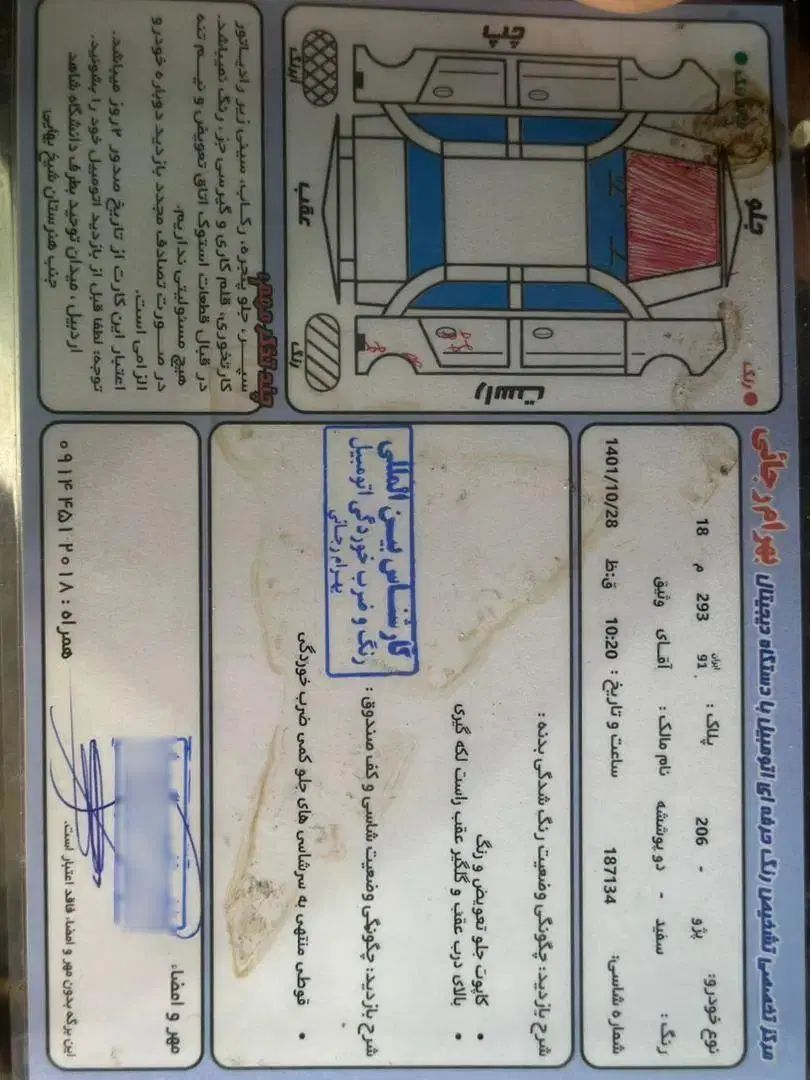 بهرام رجائی
مرکز تخصصی تشخیص رنگ حرفه ای اتومبیل با دستگاه دیجیتال
نوع خودرو: پژو - 206 پلاک: ایران 91 293 م 18
رنگ: سفید - دو پوششه نام مالک: آقای وثیق
شماره شاسی: 187134 ساعت و تاریخ: 10:20 ق:ظ 1401/10/28
شرح بازدید: چگونگی وضعیت رنگ شدگی بدنه:
• کاپوت جلو تعویض و رنگ
• بالای درب عقب و گلگیر عقب راست لکه گیری
شرح بازدید: چگونگی وضعیت شاسی و کف صندوق:
• قوطی منتهی به سرشاسی های جلو کمی ضرب خوردگی
کارشناس بین المللی
رنگ و ضرب خوردگی اتومبیل
بهرام رجائی
مهر و امضاء
این برگه بدون مهر و امضاء فاقد اعتبار است.
همراه: ۰۹۱۴ ۴۵۱ ۲۰۱۸
رنگ
رنگ
جلو
چپ
راست
عقب
لیرنگ
رنگ
چند تذکر مهم:
سپــر، جلو پنجره، رکــاب، سینی زیر رادیــاتور
کارتخوری، قلم کاری و گیرسی جز، رنگ نمیباشد.
در قبال قطعات استوک اتاق تعویض و نیــم تنه
هیچ مسئولیتی نداریم.
در صــورت تصادف مجدد بازدید دوباره خودرو
الزامی است.
اعتبار این کارت از تاریخ صدور ۲ روز میباشد.
توجه: لطفا قبل از بازدید اتومبیل خود را بشوئید.
اردبیل، میدان توحید بطرف دانشگاه شاهد
جنب هنرستان شیخ بهایی